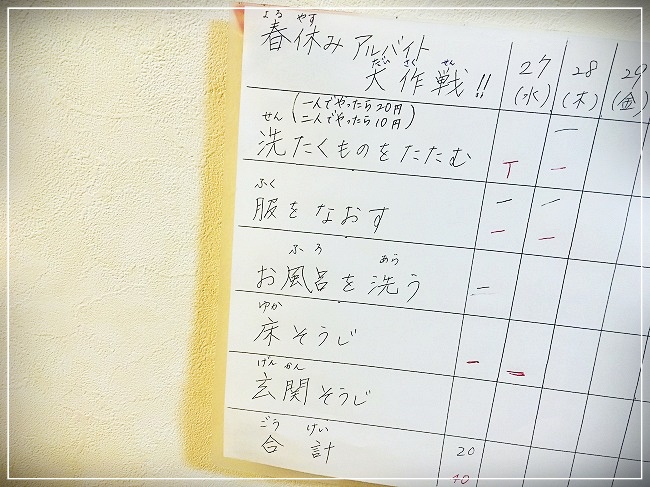 はる やす
春休み アルバイト
だい さく せん
大作戦!!
27 28 29
(水) (木) (金)
(一人でやったら20円
二人でやったら10円)
せん
洗たくものをたたむ
一
T 一
ふく
服をなおす
一 一
一 一
ふ ろ あら
お風呂を洗う
一
ゆか
床そうじ
一 一
げん かん
玄関そうじ
ごう けい
合計
20
40